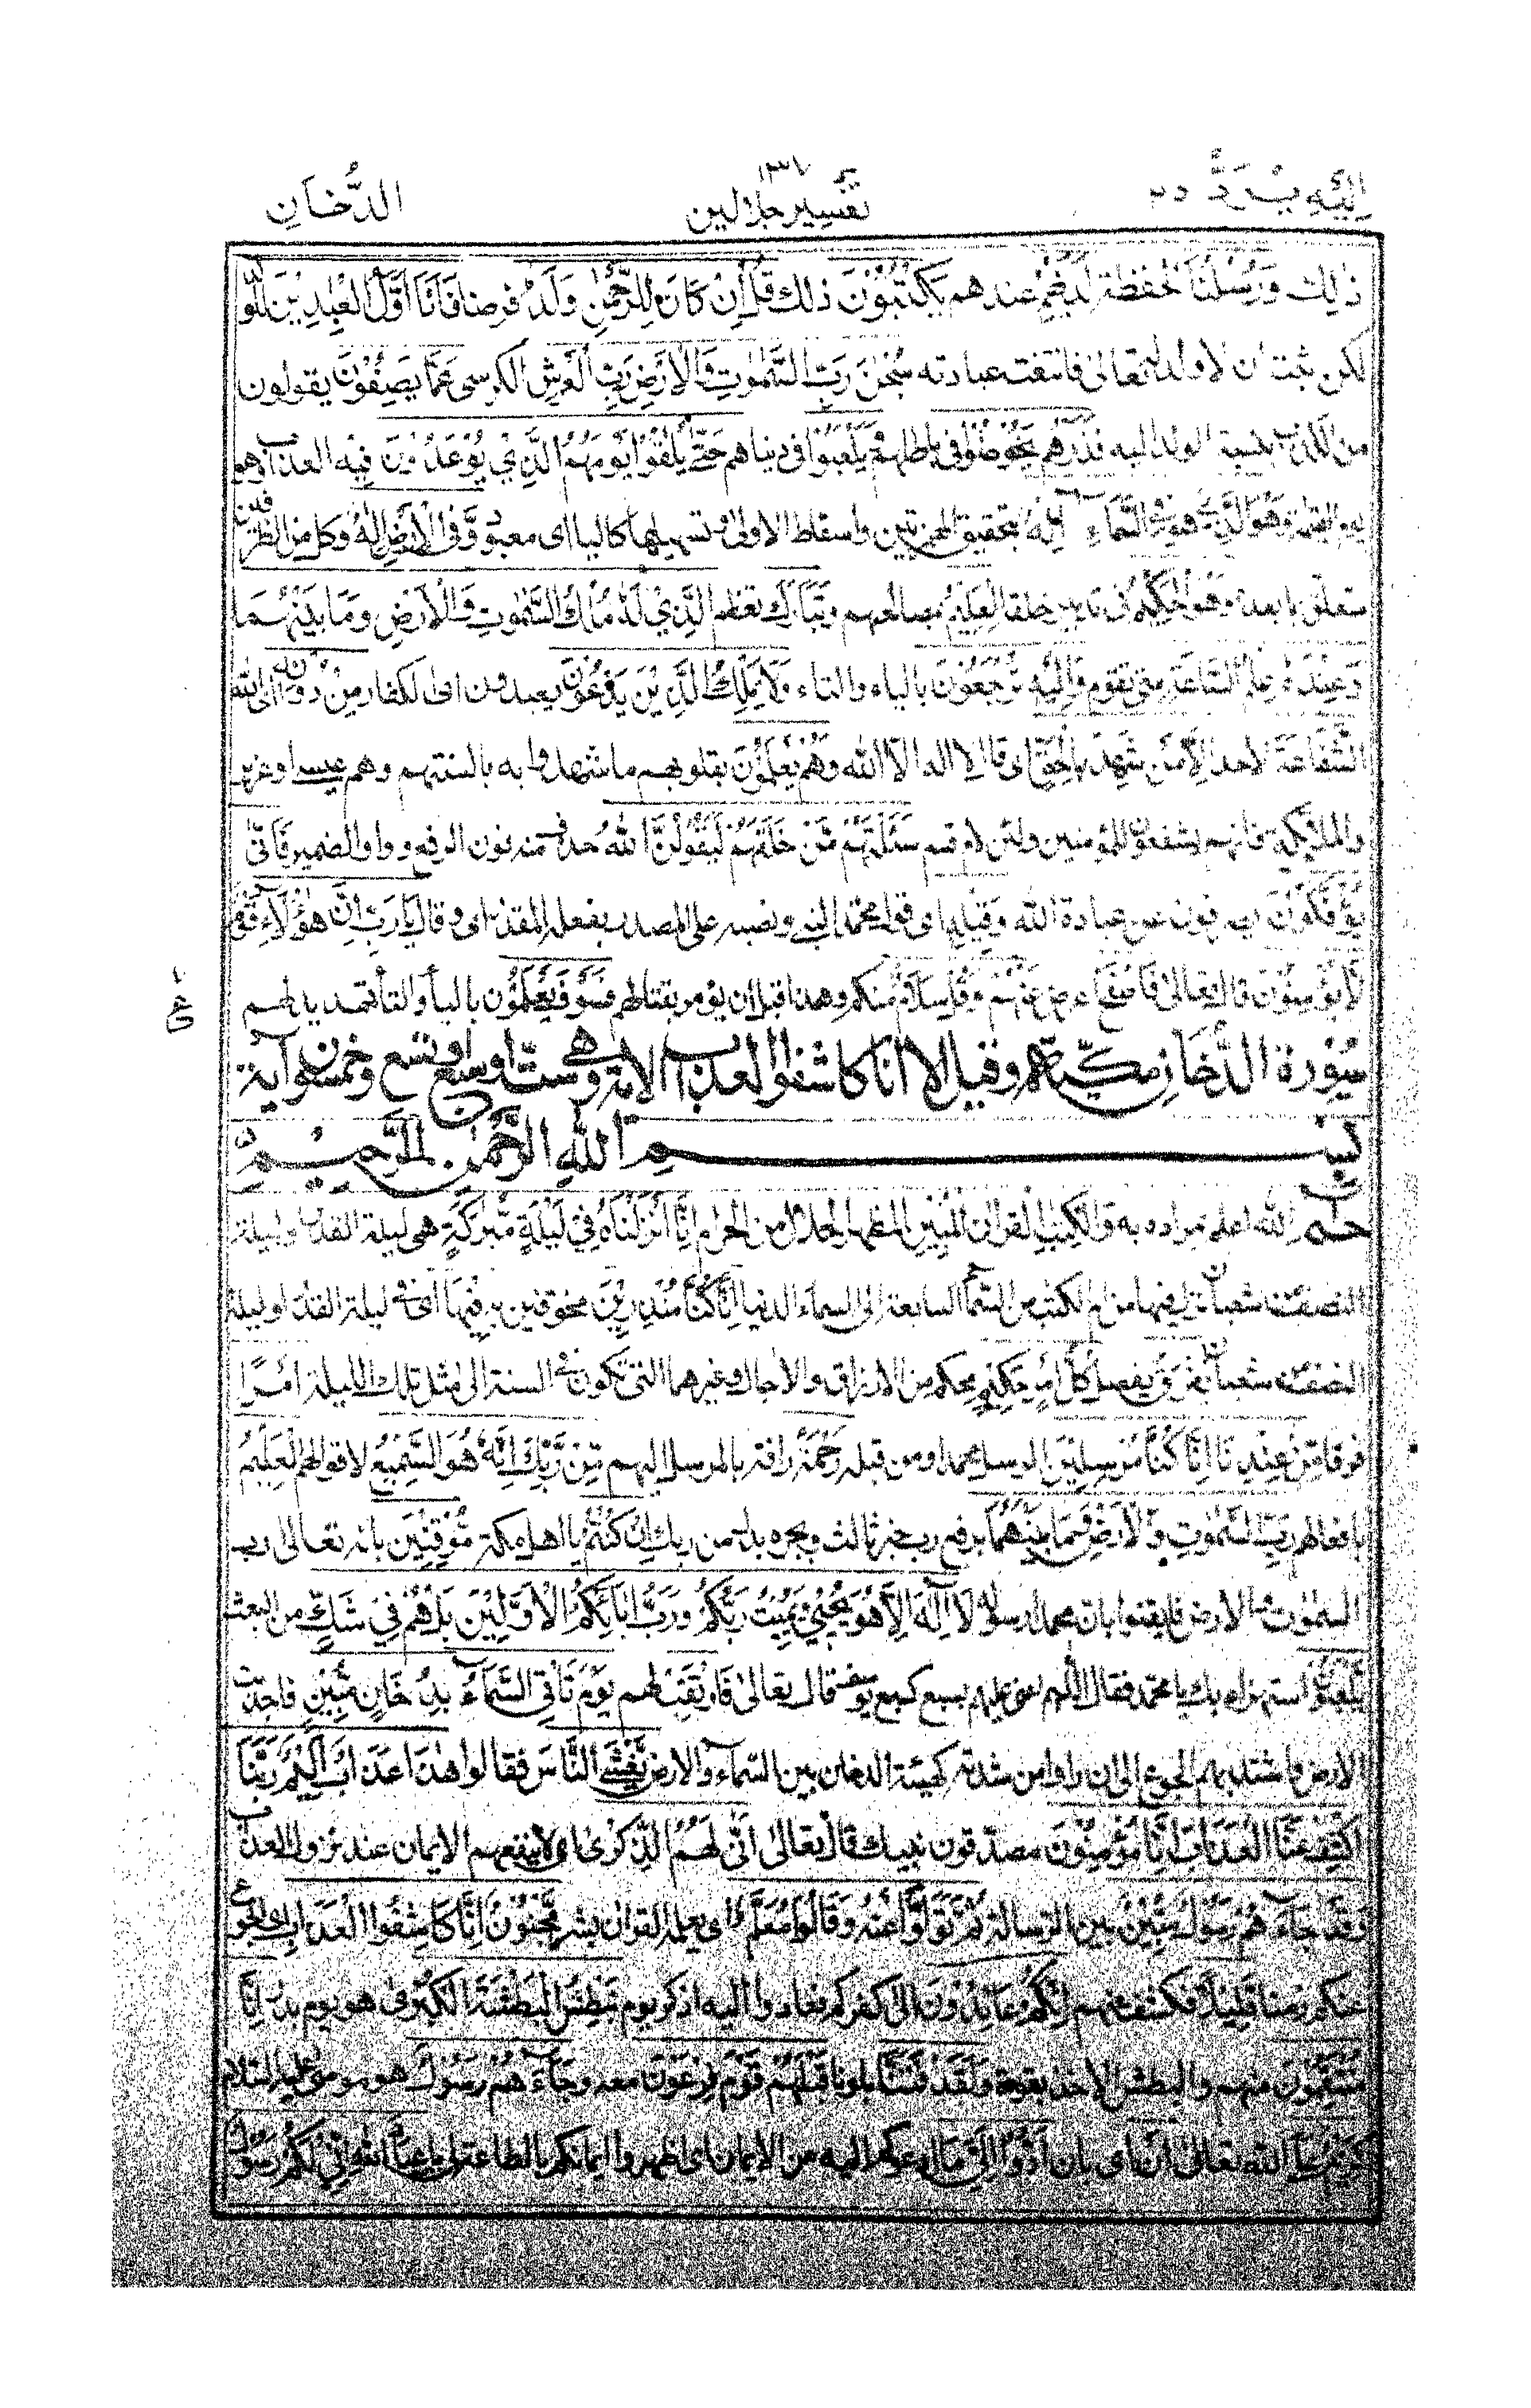 اليه يرد ٢٥ تفسير جلالين ١٣٧ الدُّخَانِ
ذٰلِكَ وَرُسُلُنَا الحفظة لَدَيْهِمْ عندهم يَكْتُبُوْنَ ذلك قُلْ اِنْ كَانَ لِلرَّحْمٰنِ وَلَدٌ فرضا فَاَنَا اَوَّلُ الْعٰبِدِيْنَ للولد
لكن ثبت ان لا ولد له تعالى فانتفت عبادته سُبْحٰنَ رَبِّ السَّمٰوٰتِ وَالْاَرْضِ رَبِّ الْعَرْشِ الكرسى عَمَّا يَصِفُوْنَ يقولون
من الكذب بنسبة الولد اليه فَذَرْهُمْ يَخُوْضُوْا فى باطلهم وَيَلْعَبُوْا فى دنياهم حَتّٰى يُلٰقُوْا يَوْمَهُمُ الَّذِيْ يُوْعَدُوْنَ فيه العذاب وهو
يوم القيمة وَهُوَ الَّذِيْ هو فِى السَّمَآءِ اِلٰهٌ بتحقيق الهمزتين واسقاط الاولى وتسهيلها كالياء اى معبود وَّفِى الْاَرْضِ اِلٰهٌ وكل من الظرفين
متعلق بما بعده وَهُوَ الْحَكِيْمُ فى تدبير خلقه الْعَلِيْمُ بمصالحهم وَتَبَارَكَ تعظم الَّذِيْ لَهٗ مُلْكُ السَّمٰوٰتِ وَالْاَرْضِ وَمَا بَيْنَهُمَا
وَعِنْدَهٗ عِلْمُ السَّاعَةِ متى تقوم وَاِلَيْهِ تُرْجَعُوْنَ بالياء والتاء وَلَا يَمْلِكُ الَّذِيْنَ يَدْعُوْنَ يعبدون اى الكفار مِنْ دُوْنِهٖ اى الله
الشَّفَاعَةَ لاحد اِلَّا مَنْ شَهِدَ بِالْحَقِّ اى قال لا اله الا الله وَهُمْ يَعْلَمُوْنَ بقلوبهم ما شهدوا به بالسنتهم وهم عيسى وعزير
والملائكة فانهم يشفعون للمؤمنين وَلَئِنْ لام قسم سَئَلْتَهُمْ مَّنْ خَلَقَهُمْ لَيَقُوْلُنَّ اللهُ حذف منه نون الرفع وواو الضمير فَاَنّٰى
يُؤْفَكُوْنَ يصرفون عن عبادة الله وَقِيْلِهٖ اى قول محمد النبى ونصبه على المصدر بفعله المقدر اى وقال يٰرَبِّ اِنَّ هٰٓؤُلَآءِ قَوْمٌ
لَّا يُؤْمِنُوْنَ قال تعالى فَاصْفَحْ اعرض عَنْهُمْ وَقُلْ سَلٰمٌ منكم وهذا قبل ان يؤمر بقتالهم فَسَوْفَ يَعْلَمُوْنَ بالياء والتاء تهديد لهم
سُوْرَة الدُّخَان مكّيّة وقيل الا انا كاشفوا العذاب الاية وهى ست او سبع او تسع وخمسون آية
بِسْــــــــمِ اللهِ الرَّحْمٰنِ الرَّحِيْمِ
حٰمٓ الله اعلم بمراده به وَالْكِتٰبِ القران الْمُبِيْنِ المظهر الحلال من الحرام اِنَّا اَنْزَلْنَاهُ فِيْ لَيْلَةٍ مُّبٰرَكَةٍ هى ليلة القدر او ليلة
النصف من شعبان نزل فيها من ام الكتب من السماء السابعة الى السماء الدنيا اِنَّا كُنَّا مُنْذِرِيْنَ مخوفين به فِيْهَا اى فى ليلة القدر او ليلة
النصف من شعبان يُفْرَقُ يفصل كُلُّ اَمْرٍ حَكِيْمٍ محكم من الارزاق والاجال وغيرهما التى تكون فى السنة الى مثل تلك الليلة اَمْرًا
فرقا مِّنْ عِنْدِنَا اِنَّا كُنَّا مُرْسِلِيْنَ الرسل محمدا ومن قبله رَحْمَةً رافة بالمرسل اليهم مِّنْ رَّبِّكَ اِنَّهٗ هُوَ السَّمِيْعُ لاقوالهم الْعَلِيْمُ
بافعالهم رَبِّ السَّمٰوٰتِ وَالْاَرْضِ وَمَا بَيْنَهُمَا برفع رب خبر ثالث وبجره بدل من ربك اِنْ كُنْتُمْ يا اهل مكة مُّوْقِنِيْنَ بانه تعالى رب
السموت والارض فايقنوا بان محمدا رسوله لَآ اِلٰهَ اِلَّا هُوَ يُحْيِيْ وَيُمِيْتُ رَبُّكُمْ وَرَبُّ اٰبَآئِكُمُ الْاَوَّلِيْنَ بَلْ هُمْ فِيْ شَكٍّ من البعث
يَّلْعَبُوْنَ استهزاء بك يا محمد فقال اللهم اعنى عليهم بسبع كسبع يوسف قال تعالى فَارْتَقِبْ لهم يَوْمَ تَاْتِى السَّمَآءُ بِدُخَانٍ مُّبِيْنٍ فاجدبت
الارض واشتد بهم الجوع الى ان راوا من شدته كهيئة الدخان بين السماء والارض يَّغْشَى النَّاسَ فقالوا هٰذَا عَذَابٌ اَلِيْمٌ رَبَّنَا
اكْشِفْ عَنَّا الْعَذَابَ اِنَّا مُؤْمِنُوْنَ مصدقون نبيك قال تعالى اَنّٰى لَهُمُ الذِّكْرٰى اى لا ينفعهم الايمان عند نزول العذاب
وَقَدْ جَآءَهُمْ رَسُوْلٌ مُّبِيْنٌ بين الرسالة ثُمَّ تَوَلَّوْا عَنْهُ وَقَالُوْا مُعَلَّمٌ اى يعلمه القران بشر مَّجْنُوْنٌ اِنَّا كَاشِفُوا الْعَذَابِ اى الجوع
عنكم زمنا قَلِيْلًا فكشف عنهم اِنَّكُمْ عَآئِدُوْنَ الى كفركم فعادوا اليه اذكر يوم نَبْطِشُ الْبَطْشَةَ الْكُبْرٰى هو يوم بدر اِنَّا
مُنْتَقِمُوْنَ منهم والبطش الاخذ بقوة وَلَقَدْ فَتَنَّا بلونا قَبْلَهُمْ قَوْمَ فِرْعَوْنَ معه وَجَآءَهُمْ رَسُوْلٌ هو موسى عليه السلام
كَرِيْمٌ على الله تعالى اَنْ اى بان اَدُّوْا اِلَيَّ ما ادعوكم اليه من الايمان اى اظهروا ايمانكم بالطاعة لى يا عِبَادَ اللهِ اِنِّيْ لَكُمْ رَسُوْلٌ